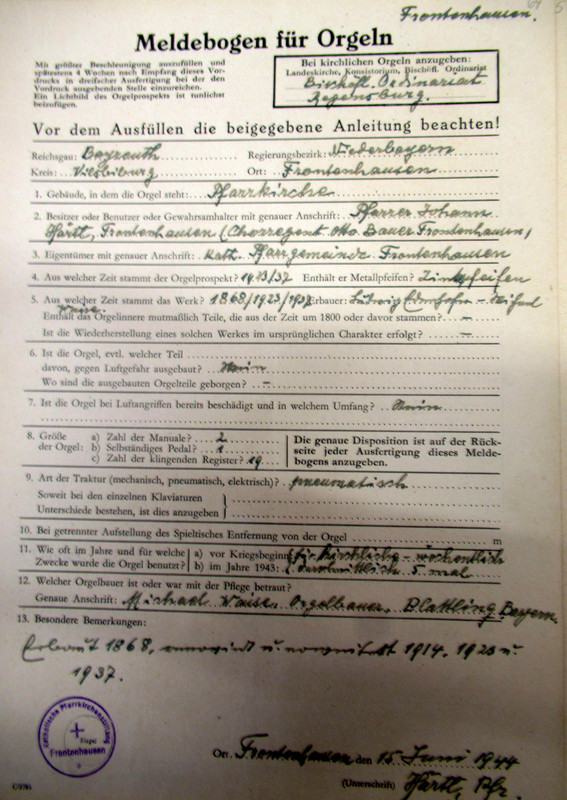 Frontenhausen.
Meldebogen für Orgeln
Mit größter Beschleunigung auszufüllen und
spätestens 4 Wochen nach Empfang dieses Vor-
drucks in dreifacher Ausfertigung bei der den
Vordruck ausgebenden Stelle einzureichen.
Ein Lichtbild des Orgelprospekts ist tunlichst
beizufügen.
Bei kirchlichen Orgeln anzugeben:
Landeskirche, Konsistorium, Bischöfl. Ordinariat
Bischöfl. Ordinariat
Regensburg.
Vor dem Ausfüllen die beigegebene Anleitung beachten!
Reichsgau: Bayreuth Regierungsbezirk: Niederbayern
Kreis: Vilsbiburg Ort: Frontenhausen
1. Gebäude, in dem die Orgel steht: Pfarrkirche
2. Besitzer oder Benutzer oder Gewahrsamhalter mit genauer Anschrift: Pfarrer Johann
Härtl, Frontenhausen (Chorregent Otto Bauer Frontenhausen)
3. Eigentümer mit genauer Anschrift: Kath. Pfarrgemeinde Frontenhausen
4. Aus welcher Zeit stammt der Orgelprospekt? 1923/37 Enthält er Metallpfeifen? Zinkpfeifen
5. Aus welcher Zeit stammt das Werk? 1868/1923/1937 Erbauer: Ludwig - Michael
Weise.
Enthält das Orgelinnere mutmaßlich Teile, die aus der Zeit um 1800 oder davor stammen? —
Ist die Wiederherstellung eines solchen Werkes im ursprünglichen Charakter erfolgt? —
6. Ist die Orgel, evtl. welcher Teil
davon, gegen Luftgefahr ausgebaut? Nein
Wo sind die ausgebauten Orgelteile geborgen? —
7. Ist die Orgel bei Luftangriffen bereits beschädigt und in welchem Umfang? Nein
8. Größe der Orgel: a) Zahl der Manuale? 2
b) Selbständiges Pedal? 1
c) Zahl der klingenden Register? 19
Die genaue Disposition ist auf der Rück-
seite jeder Ausfertigung dieses Melde-
bogens anzugeben.
9. Art der Traktur (mechanisch, pneumatisch, elektrisch)? pneumatisch
Soweit bei den einzelnen Klaviaturen
Unterschiede bestehen, ist dies anzugeben
10. Bei getrennter Aufstellung des Spieltisches Entfernung von der Orgel m
11. Wie oft im Jahre und für welche Zwecke wurde die Orgel benutzt?
a) vor Kriegsbeginn: für kirchliche - wöchentlich
b) im Jahre 1943: durchschnittlich 5 mal
12. Welcher Orgelbauer ist oder war mit der Pflege betraut?
Genaue Anschrift: Michael Weise, Orgelbauer, Plattling Bayern.
13. Besondere Bemerkungen:
Erbaut 1868, renoviert u. 1914, 1923 u.
1937.
Katholische Pfarrkirchenstiftung
Siegel
Frontenhausen
Ort Frontenhausen den 15. Juni 1944
(Unterschrift) Härtl, Pfr.